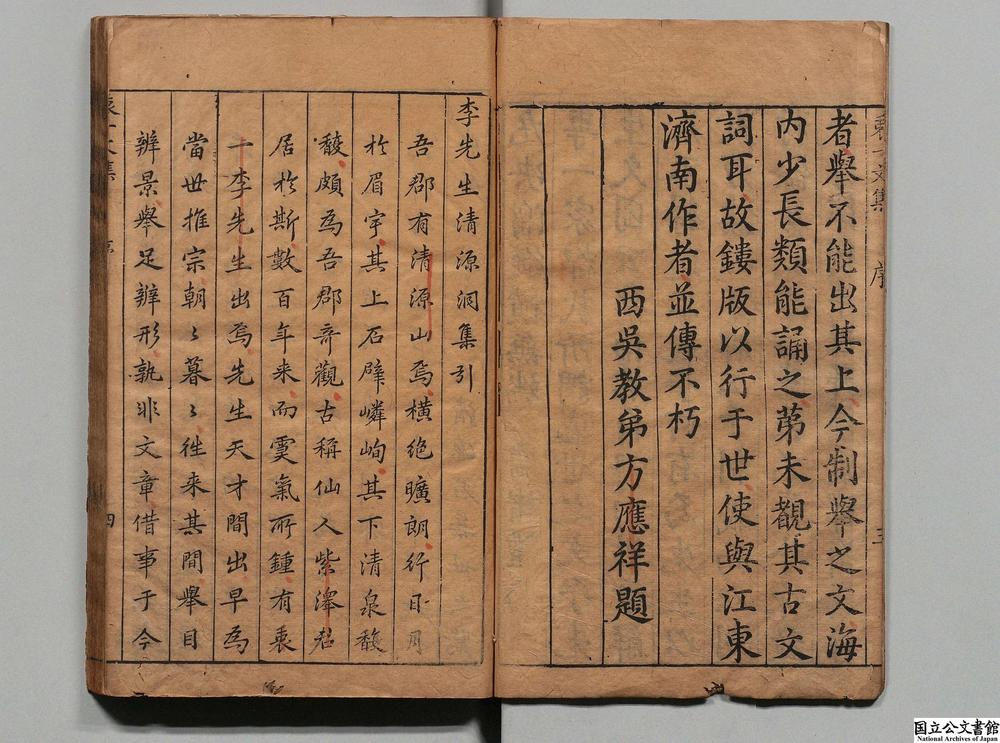 者舉不能出其上今制舉之文海
内少長類能誦之苐未覩其古文
詞耳故鏤版以行于世使與江東
濟南作者並傳不朽
西吳教弟方應祥題
李先生清源洞集引
吾郡有清源山焉橫絶曠朗行日月
於眉宇其上石壁嶙峋其下清泉馥
馥頗為吾郡奇觀古稱仙人紫澤君
居於斯數百年来而靈氣所鍾有衷
一李先生出焉先生天才間出早為
當世推宗朝〻暮〻徃来其間舉目
辨景舉足辦形孰非文章借事于今
四
国立公文書館
National Archives of Japan